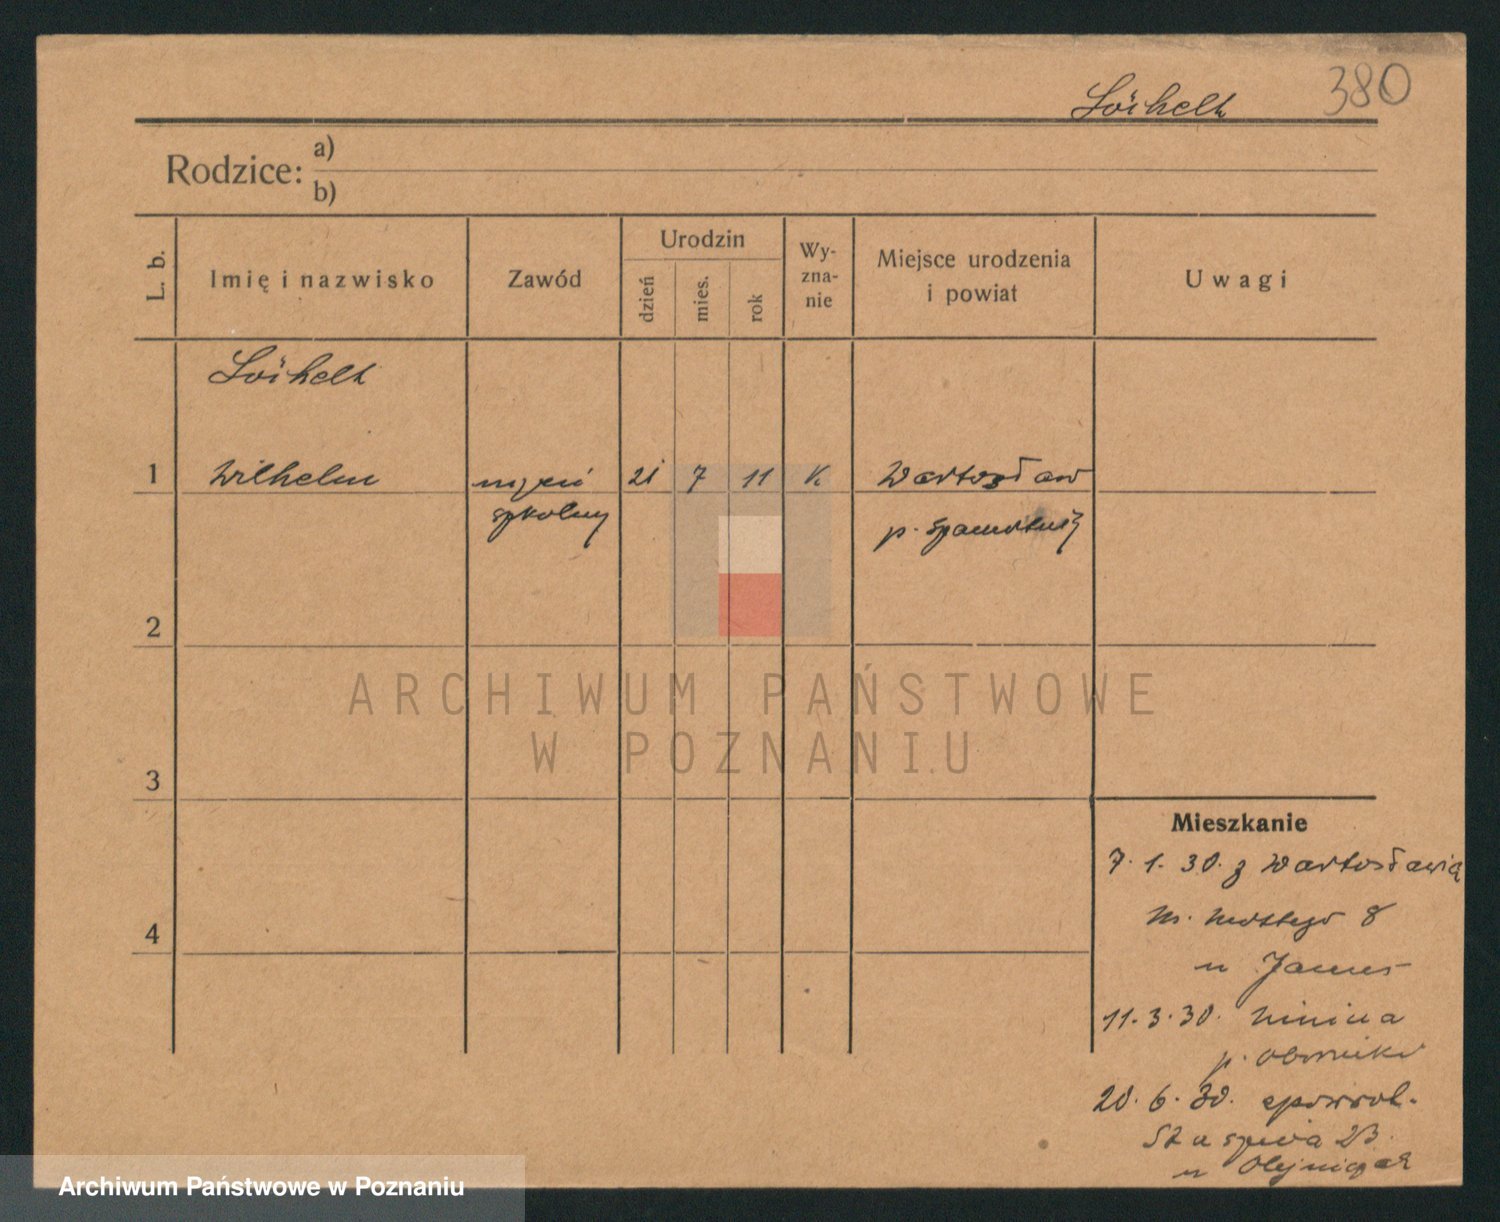 380
Rodzice: a)
b)
L. b.
Imię i nazwisko
Zawód
Urodzin
dzień
mies.
rok
Wy-
zna-
nie
Miejsce urodzenia
i powiat
Uwagi
1
Wilhelm
szkolny
21
7
11
K.
Wartosław
p. Szamotuły
2
3
4
Mieszkanie
7. 1. 30. z Wartosławia
8
u
11. 3. 30. Ninina
p. Oborniki
20. 6. 30.
Staszica 23.
u Olejniczak
ARCHIWUM PAŃSTWOWE
W POZNANIU
Archiwum Państwowe w Poznaniu